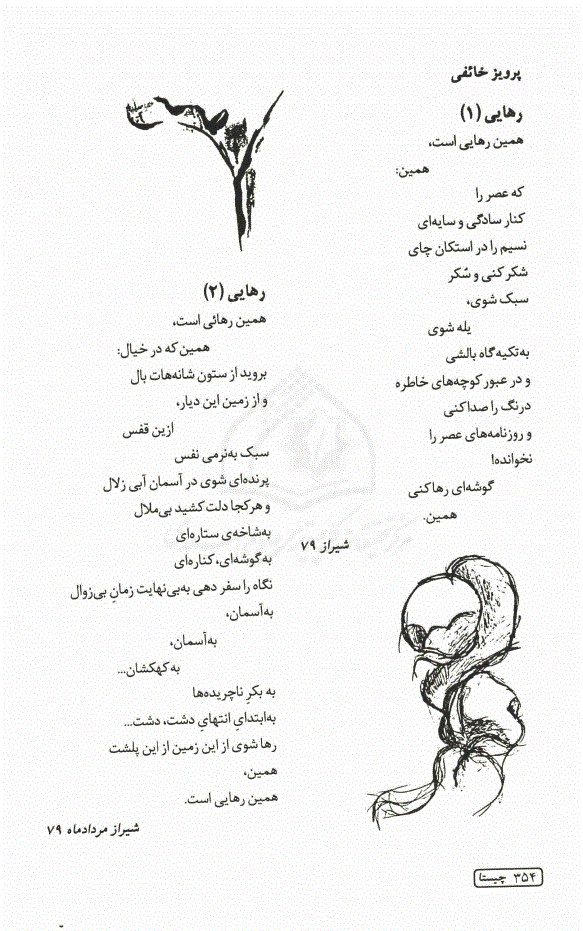 پرویز خائفی
رهایی (۱)
همین رهایی است،
همین:
که عصر را
کنار سادگی و سایه‌ای
نسیم را در استکان چای
شکر کنی و سُکر
سبک شوی،
یله شوی
به‌تکیه‌گاه بالشی
و در عبور کوچه‌های خاطره
درنگ را صداکنی
و روزنامه‌های عصر را
نخوانده!
گوشه‌ای رهاکنی
همین.
شیراز ۷۹
رهایی (۲)
همین رهائی است،
همین که در خیال:
بروید از ستون شانه‌هات بال
و از زمین این دیار،
ازین قفس
سبک به‌نرمی نفس
پرنده‌ای شوی در آسمان آبی زلال
و هرکجا دلت کشید بی‌ملال
به‌شاخه‌ی ستاره‌ای
به‌گوشه‌ای، کناره‌ای
نگاه را سفر دهی به‌بی‌نهایت زمانِ بی‌زوال
به‌آسمان،
به‌آسمان،
به‌کهکشان...
به بکرِ ناچریده‌ها
به‌ابتدایِ انتهایِ دشت، دشت...
رها شوی از این زمین از این پلشت
همین،
همین رهایی است.
شیراز مردادماه ۷۹
۳۵۴ چیستا